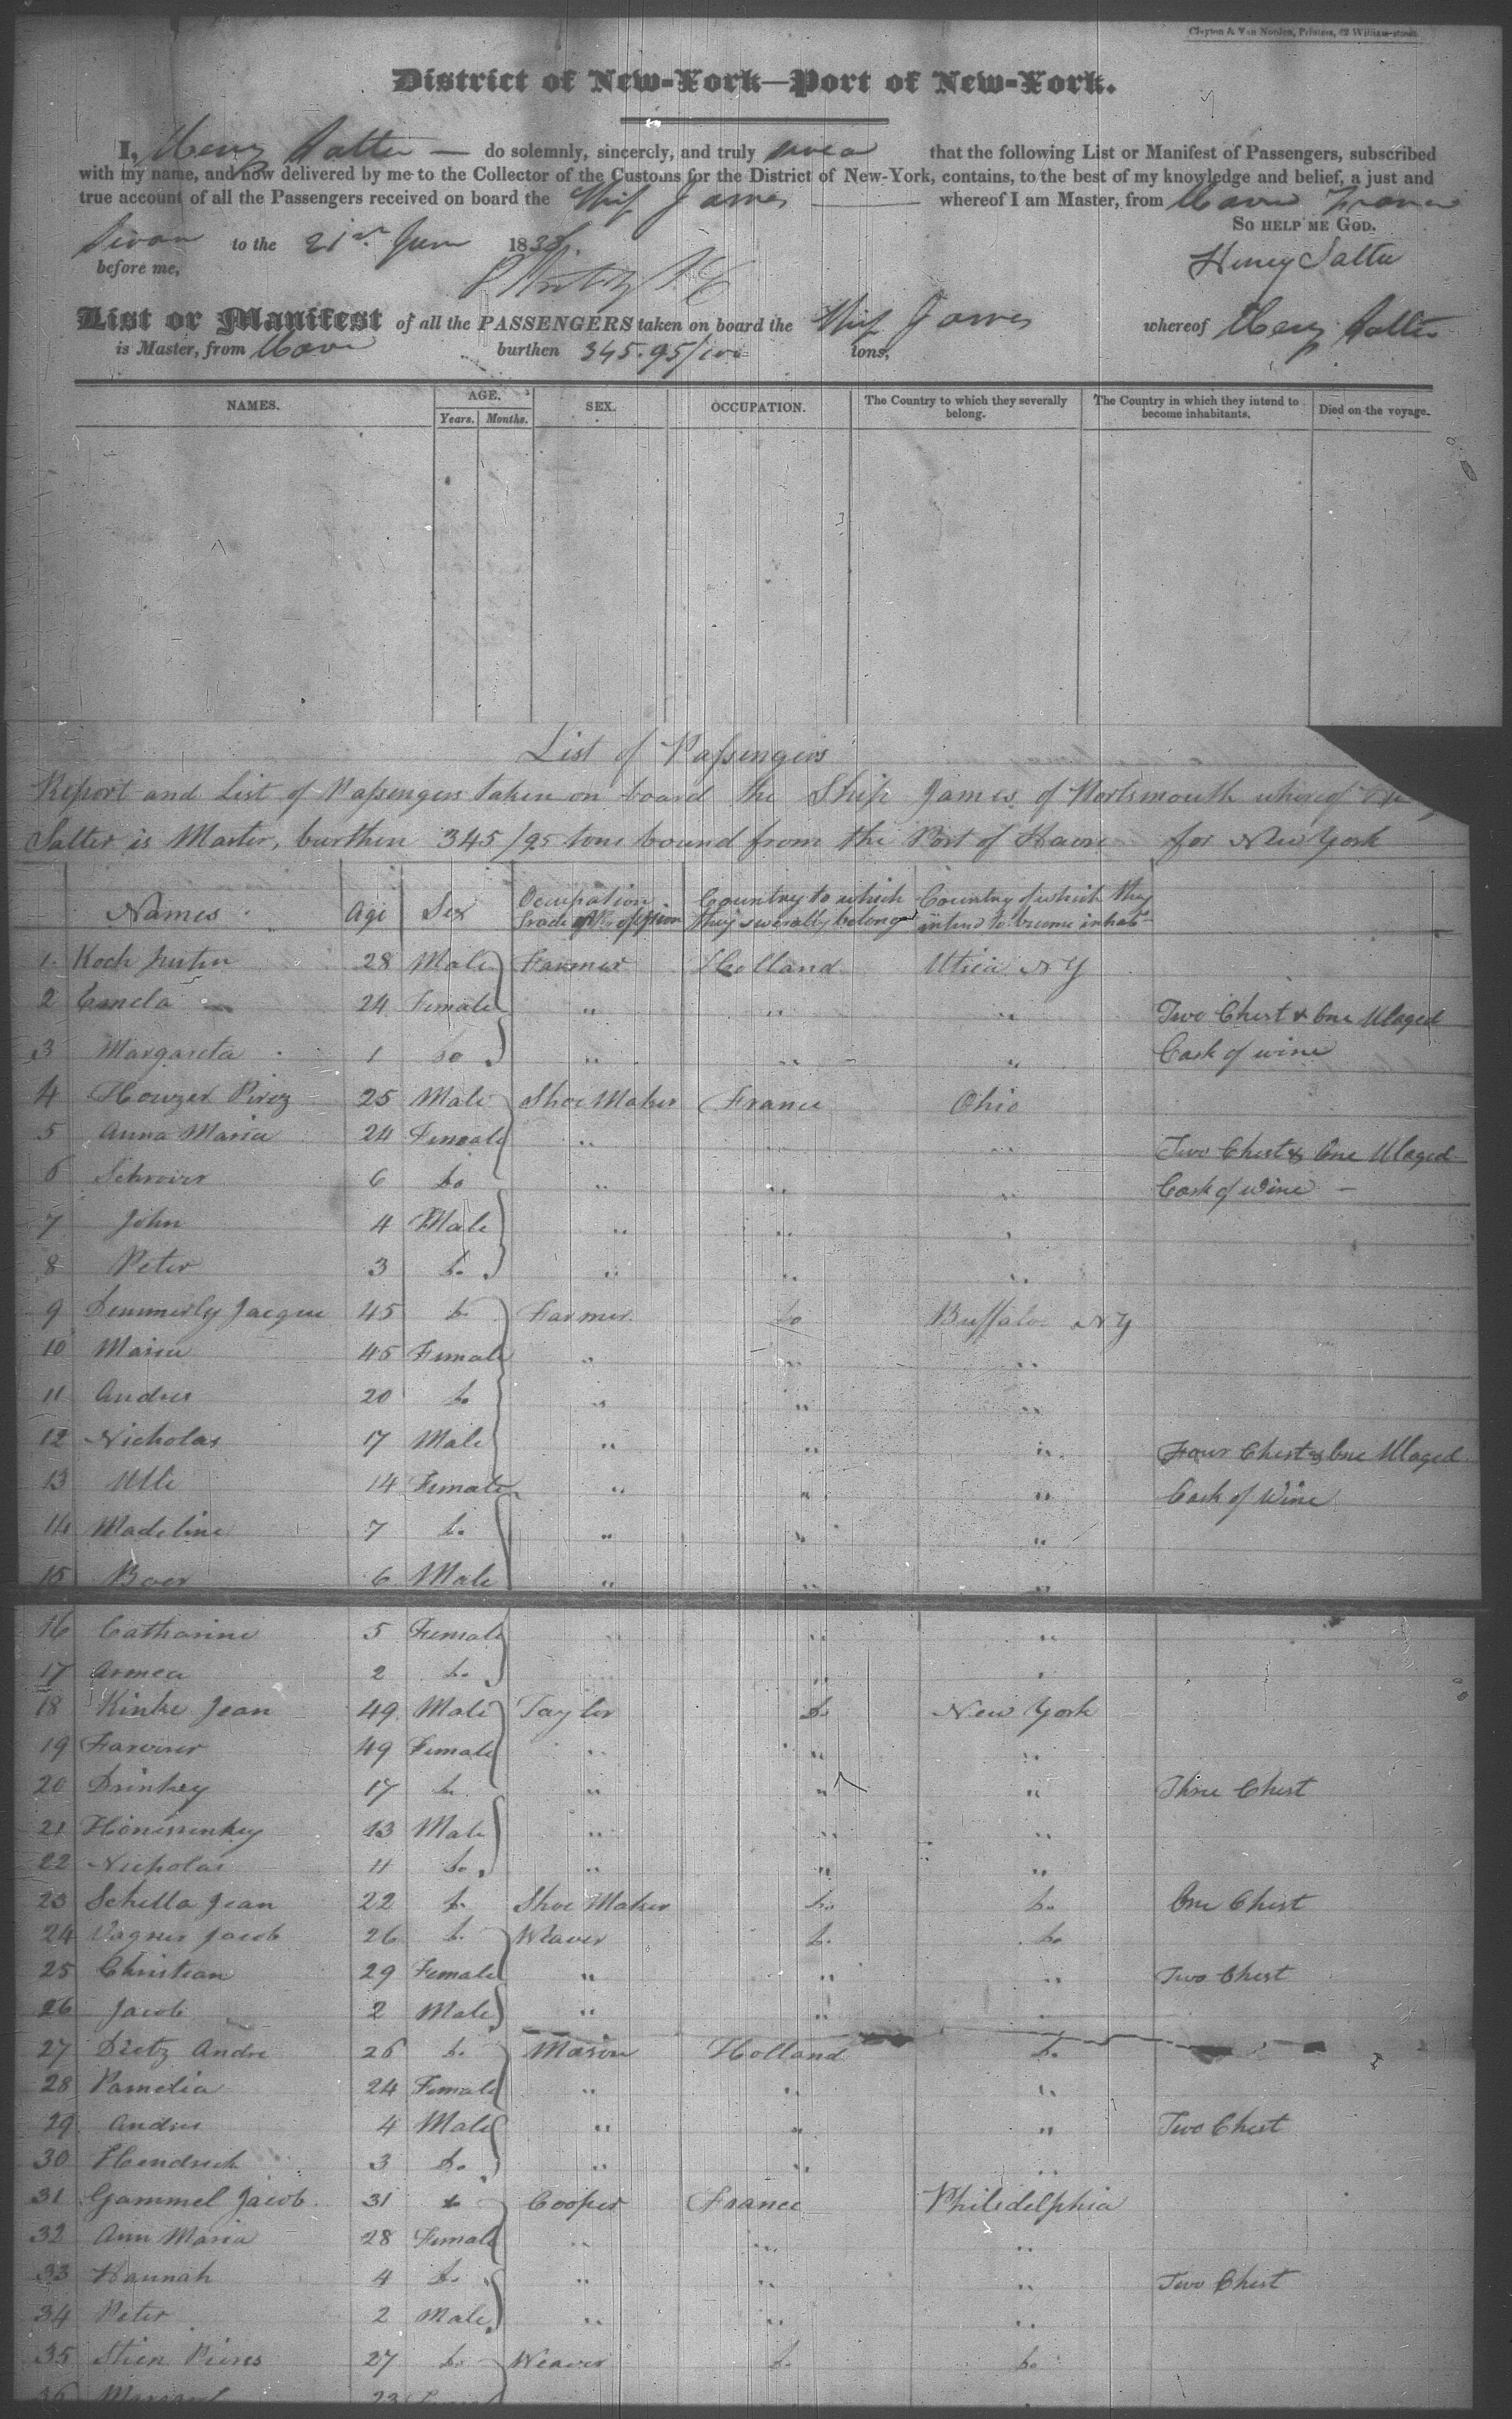 Clayton & Van Norden, Printers, 42 William-street.
District of New-York—Port of New-York.
I, Henry Salter — do solemnly, sincerely, and truly swear that the following List or Manifest of Passengers, subscribed
with my name, and now delivered by me to the Collector of the Customs for the District of New-York, contains, to the best of my knowledge and belief, a just and
true account of all the Passengers received on board the Ship James whereof I am Master, from Havre France
So help me God.
Sworn to the 21st June 1838.
before me,
Henry Salter
List or Manifest of all the PASSENGERS taken on board the Ship James whereof Henry Salter
is Master, from Havre burthen 345.95/100 tons,
NAMES. AGE. Years. Months. SEX. OCCUPATION. The Country to which they severally belong. The Country in which they intend to become inhabitants. Died on the voyage.
List of Passengers
Report and List of Passengers taken on board the Ship James of Portsmouth whereof
Salter is Master, burthen 345/95 tons bound from the Port of Havre for New York
Names Age Sex Occupation Country to which they severally belong Country of which they intend to become inhabts
1 Koch Justin 28 Male Farmer Holland Utica NY
2 24 Female " " " Two Chest & One Ulaged
3 Margareta 1 Do " " " Cask of wine
4 Howzer 25 Male Shoe Maker France Ohio
5 Anna Maria 24 Female " " " Two Chest & One Ulaged
6 6 Do " " " Cask of Wine —
7 John 4 Male " " "
8 Peter 3 Do " " "
9 Demmerly Jacque 45 Do Farmer Do Buffalo NY
10 Maria 45 Female " " "
11 Andres 20 Do " " "
12 Nicholas 17 Male " " " Four Chest & One Ulaged
13 14 Female " " " Cask of Wine
14 Madeline 7 Do " " "
15 Boer 6 Male " " "
16 Catharine 5 Female " " "
17 2 Do " "
18 Kinke Jean 49 Male Taylor Do New York
19 49 Female " " "
20 Drinkey 17 Do " " " Three Chest
21 13 Male " " "
22 Nicholas 11 Do " " "
23 Schilla Jean 22 Do Shoe Maker Do Do One Chest
24 Vagner Jacob 26 Do Weaver Do Do
25 Christian 29 Female " " " Two Chest
26 Jacob 2 Male " " "
27 Dietz Andre 26 Do Mason Holland Do
28 Pamelia 24 Female " " "
29 Andres 4 Male " " " Two Chest
30 Hendrick 3 Do " " "
31 Gammel Jacob 31 Do Cooper France Philedelphia
32 Ann Maria 28 Female " " "
33 Hannah 4 Do " " " Two Chest
34 Peter 2 Male " " "
35 Stien Pierre 27 Do Weaver Do Do
36 23